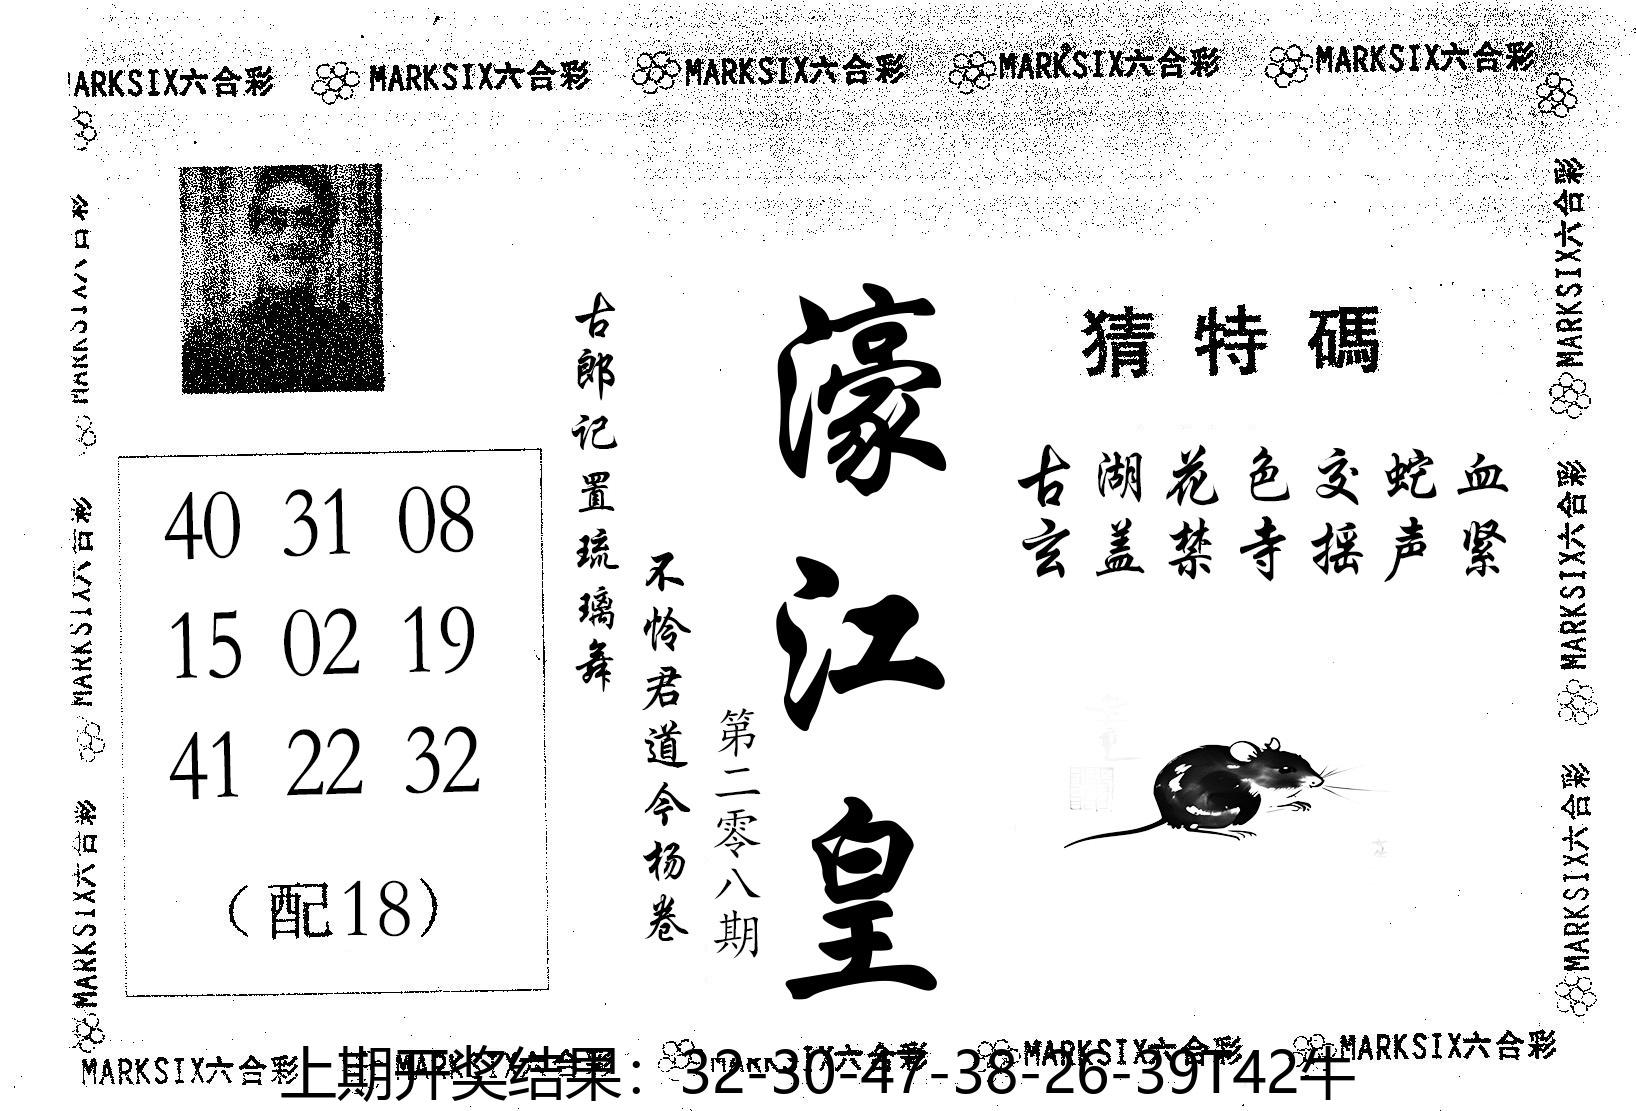 MARKSIX六合彩 MARKSIX六合彩 MARKSIX六合彩 MARKSIX六合彩 MARKSIX六合彩
MARKSIX六合彩
MARKSIX六合彩
MARKSIX六合彩
猜特碼
古湖花色交蛇血
玄盖禁寺摇声紧
濠江皇
第二零八期
不怜君道今杨卷
古郎记置琉璃舞
40 31 08
15 02 19
41 22 32
（配18）
MARKSIX六合彩
MARKSIX六合彩
MARKSIX六合彩
MARKSIX六合彩 MARKSIX六合彩 MARKSIX六合彩 MARKSIX六合彩 MARKSIX六合彩
上期开奖结果：32-30-47-38-26-39T42牛